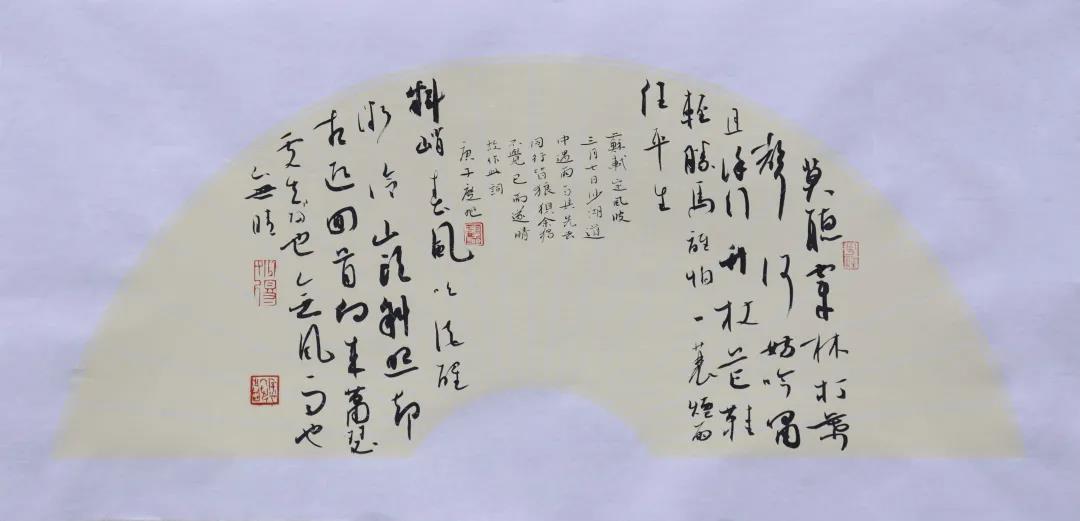 莫聽穿林打葉
聲何妨吟嘯
且徐行竹杖芒鞋
輕勝馬誰怕一蓑煙雨
任平生
蘇軾定風波
三月七日沙湖道
中遇雨雨具先去
同行皆狼狽余獨
不覺已而遂晴
故作此詞
庚子
料峭春風吹酒醒
微冷山頭斜照却
相迎回首向來蕭瑟
處歸去也無風雨也
無晴